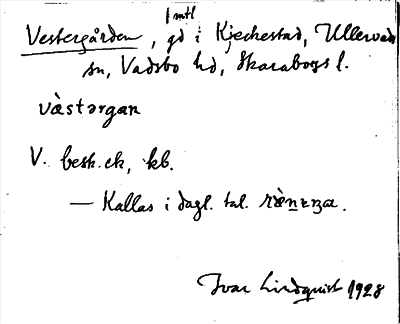 1 mtl
Vestergården, gd i Kjechestad, Ullervad
sn, Vadsbo hd, Skarabogs l.
vàstərgaɳ
V. besk. ck, kb.
— Kallas i dagl. tal.
Ivar Lindquist 1928